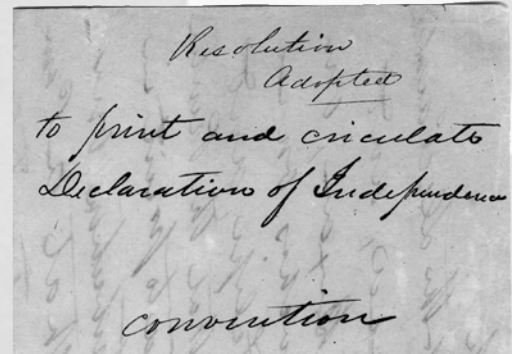 Resolution
Adopted
to print and circulate
Declaration of Independence
convention